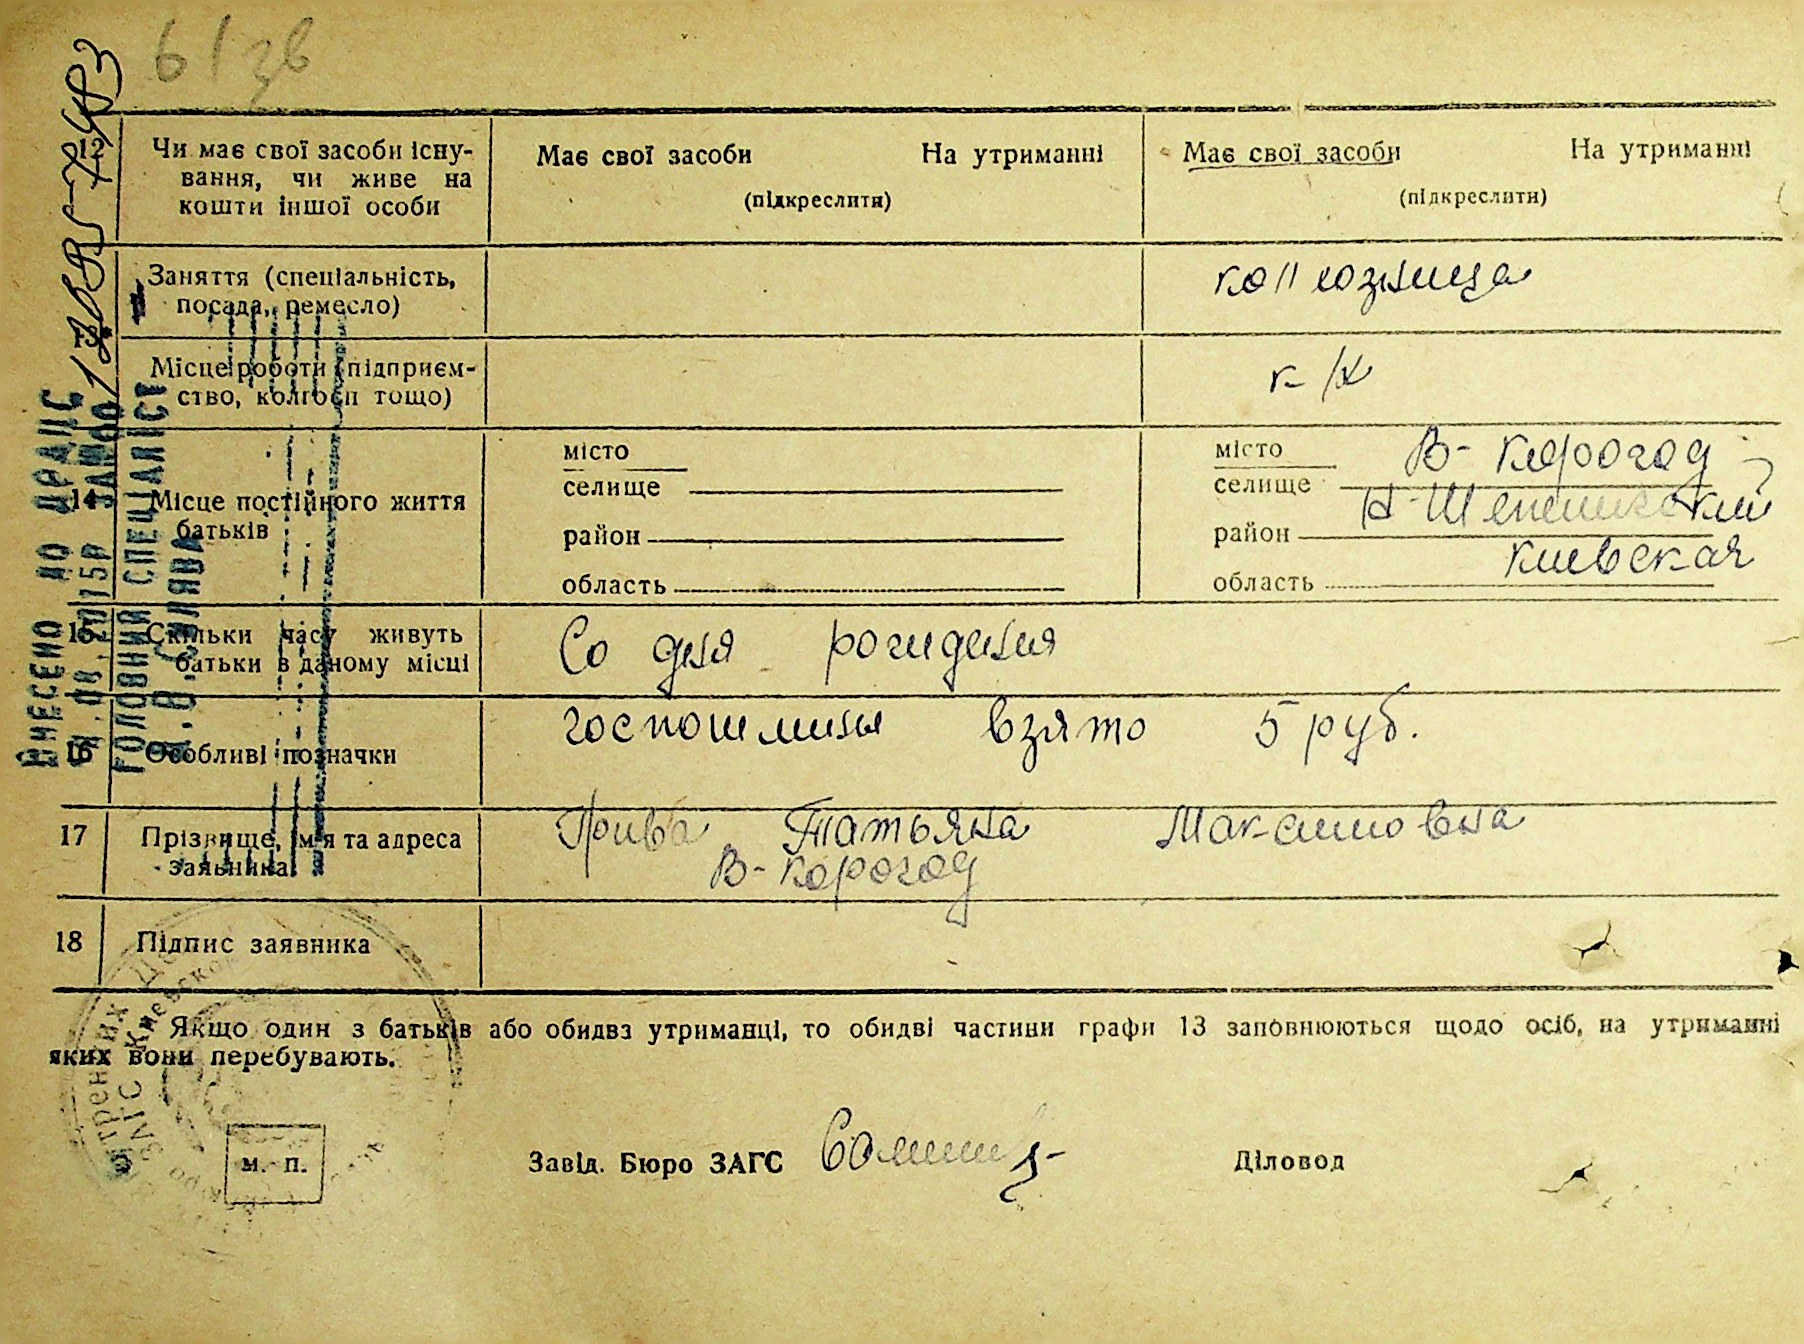 61 зв
12 Чи має свої засоби існу-
вання, чи живе на
кошти іншої особи
Має свої засоби На утриманні
(підкреслити)
Має свої засоби На утриманні
(підкреслити)
13 Заняття (спеціальність,
посада, ремесло)
колхозница
Місце роботи (підприєм-
ство, колгосп тощо)
к/х
14 Місце постійного життя
батьків
місто
селище
район
область
місто В-Корогод
селище
район Н-Шепеличский
область Киевская
15 Скільки часу живуть
батьки в даному місці
Со дня рождения
16 Особливі позначки
госпошлины взято 5 руб.
17 Прізвище, ім'я та адреса
заявника
Татьяна Максимовна
В-Корогод
18 Підпис заявника
Якщо один з батьків або обидва утриманці, то обидві частини графи 13 заповнюються щодо осіб, на утриманні
яких вони перебувають.
м. п.
Завід. Бюро ЗАГС
Діловод
ВНЕСЕНО ДО ДРАЦС
08.2015Р ЗА №00
ГОЛОВНИЙ СПЕЦІАЛІСТ
ЗАГС Киевской